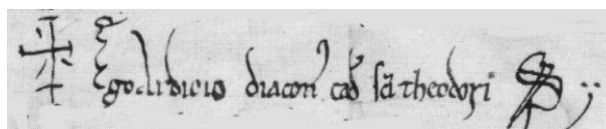 ✠ Ego didicio diacon' card' sci theodori SS